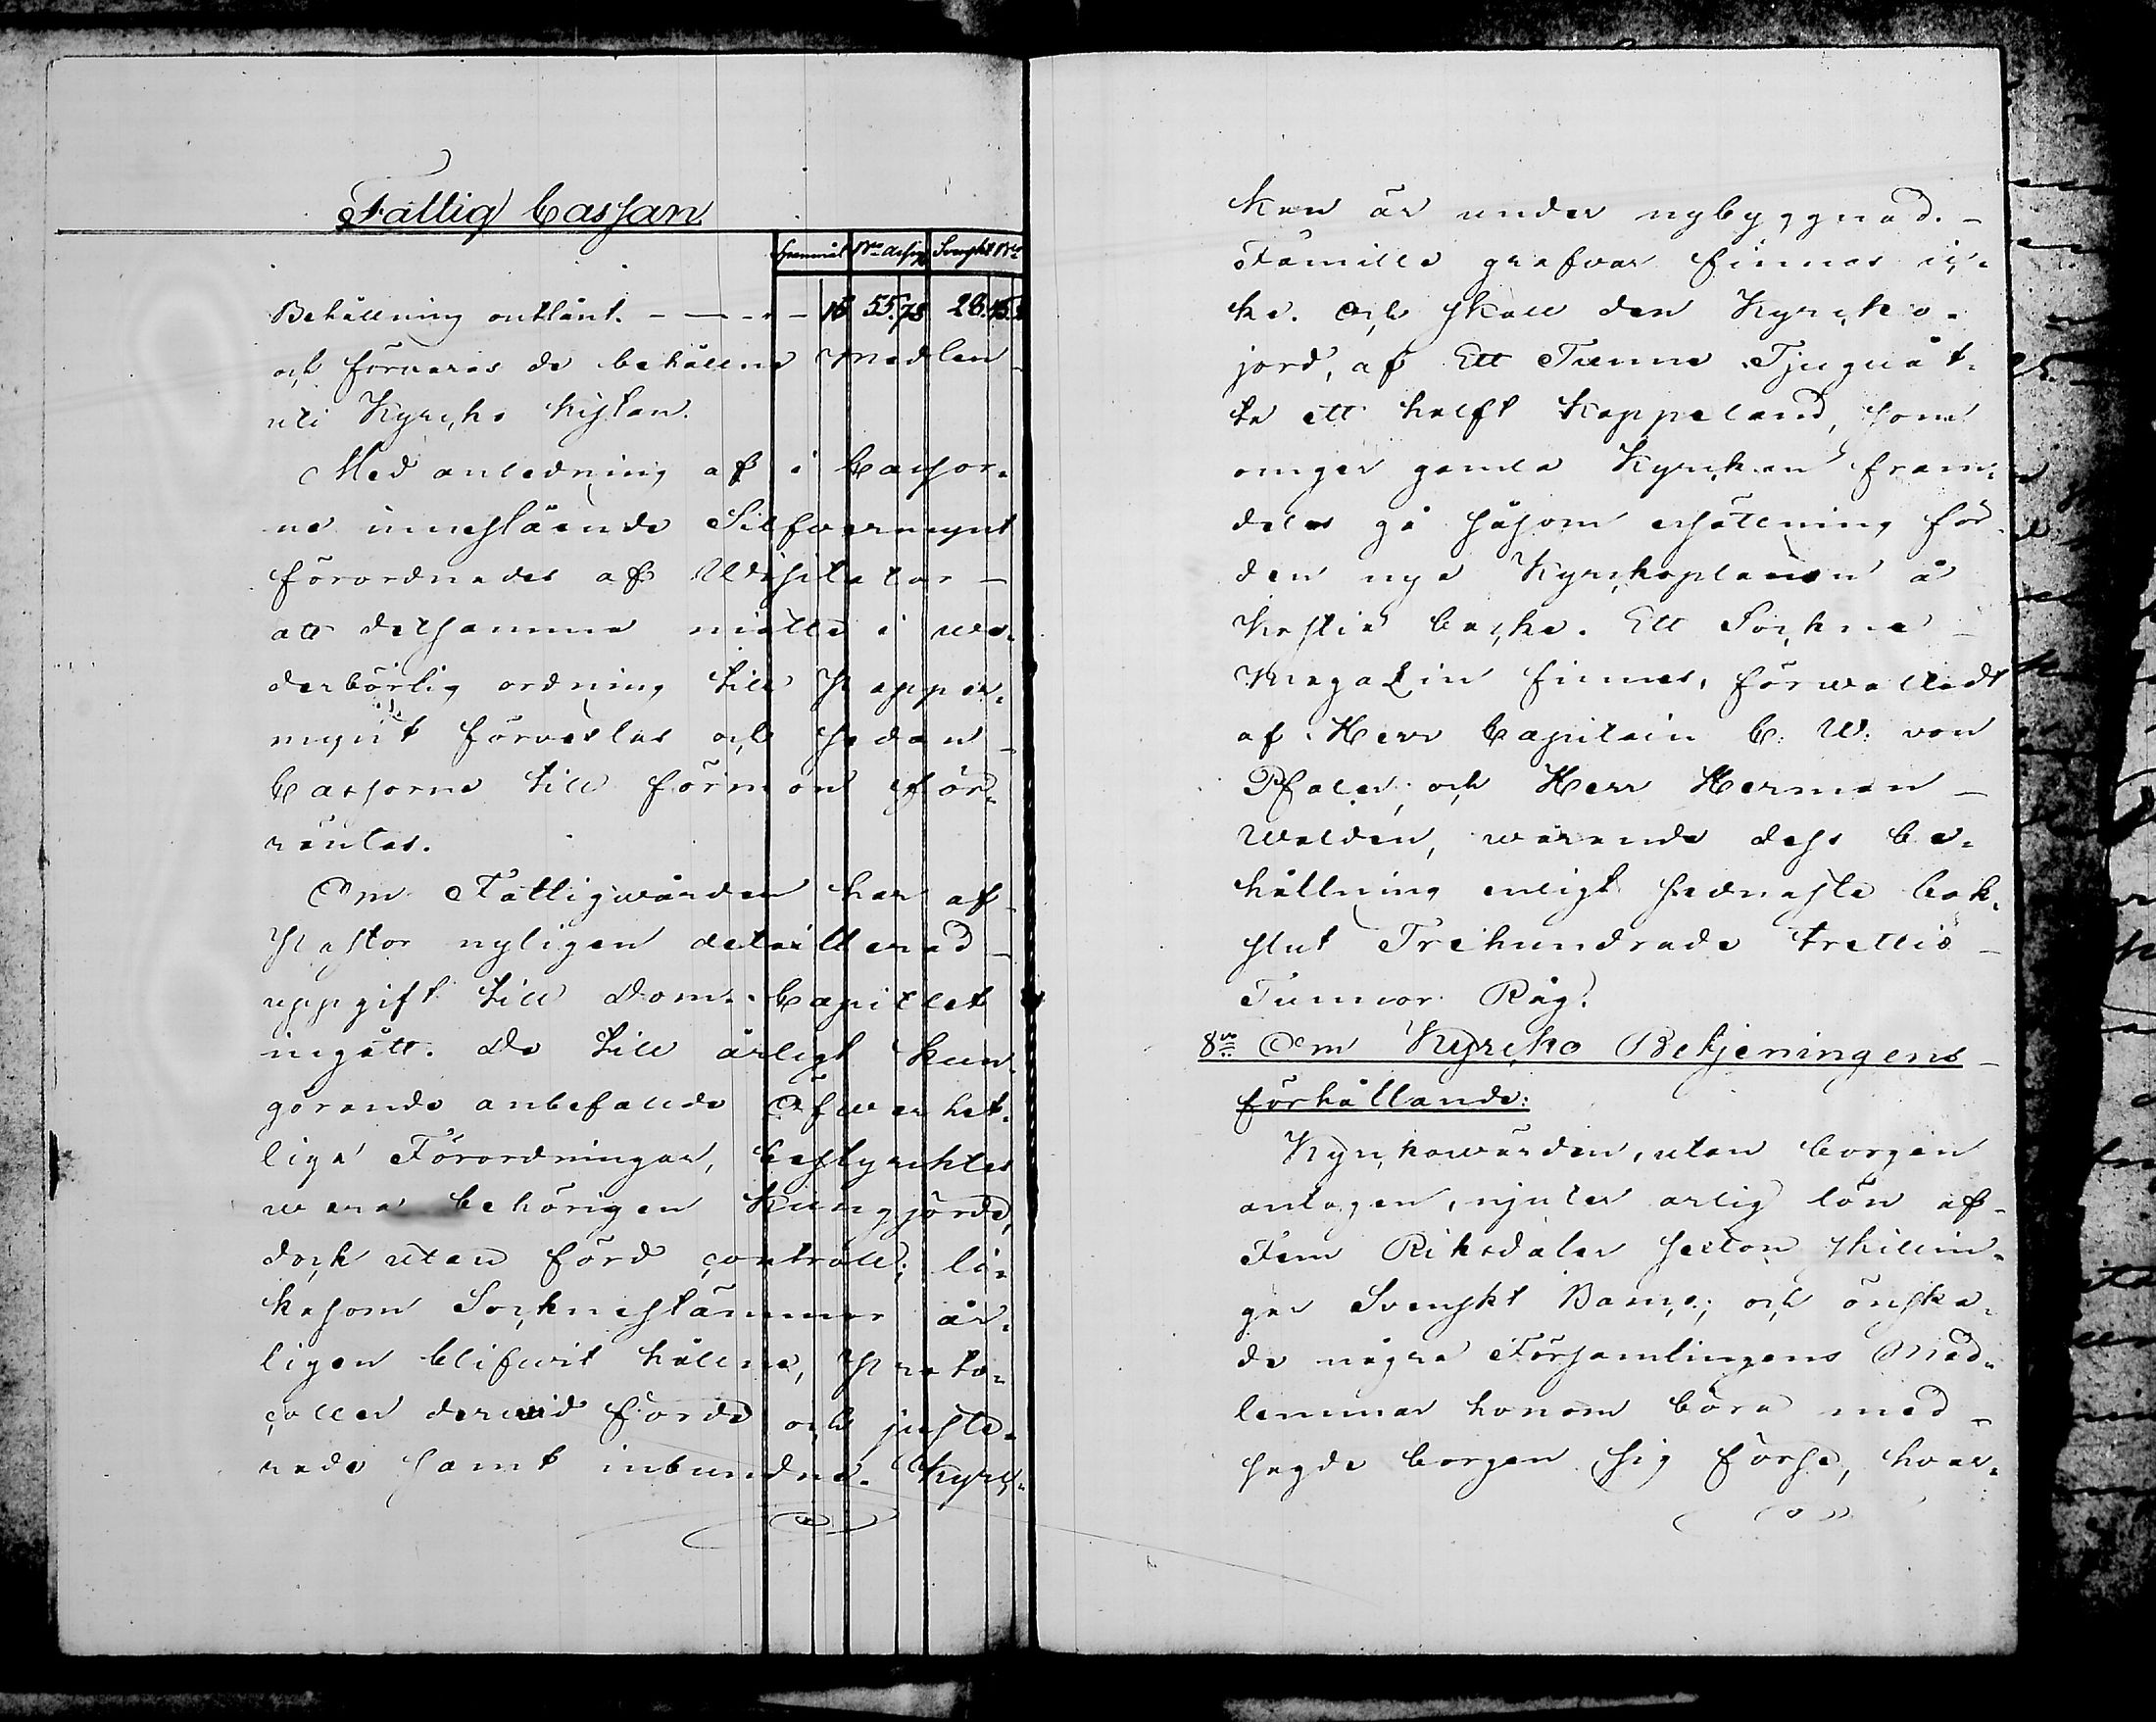 Fattig Cassan
Spanmål Bco Assig Svenskt Bco
Behållning outlånt. - - - - 16 55. 78 28. 15.
och förvaras de behållne Medlen
uti Kyrcko Kistan.
Med anledning af i Cassor-
ne innestående Silfwermynt
förordnades af Visitator -
att detsamma måtte i we-
derbörlig ordning till Papper-
mynt förvexlas och sedan -
Cassorne till förmon för-
räntas.
Om Fattigwården har af -
Pastor nyligen detaillerad -
uppgift till Dom-Capitlet
ingått. De till årligt kun-
görande anbefallde Öfwerhet-
liga Förordningar, bestyrcktes
wara behörigen Kungjorde,
dock utan förd controll; li-
kasom Socknestämmor år-
ligen blifwit hållne, Proto-
coller derwid förde och juste-
rade samt inbundne. Kyrc-
kan är under nybyggnad. -
Famille grafvar finnes ic-
ke. Och skall den Kyrcko-
jord, af Ett Tunne Tjuguåt-
ta ett halft Kappeland, som
omger gamla Kyrckan fram-
deles gå såsom ersättning för
den nya Kyrckoplanen å
backe. Ett Sockne -
Magazin finnes, förwaltadt
af Herr Capitain C. W. von
Pfaler, och Herr Herman -
Walden, warande dess be-
hållning enligt sednaste bok-
slut Trehundrade trettio -
Tunnor Råg.
8vo Om Kyrcko Betjeningens -
förhållande:
Kyrckowärden, utan borgen
antagen, njuter årlig lön af -
Fem Riksdaler sexton skillin-
gar Svenskt Banco; och önska-
de några Församlingens Med-
lemmar honom böra med -
sagde borgen sig förse, hvar-